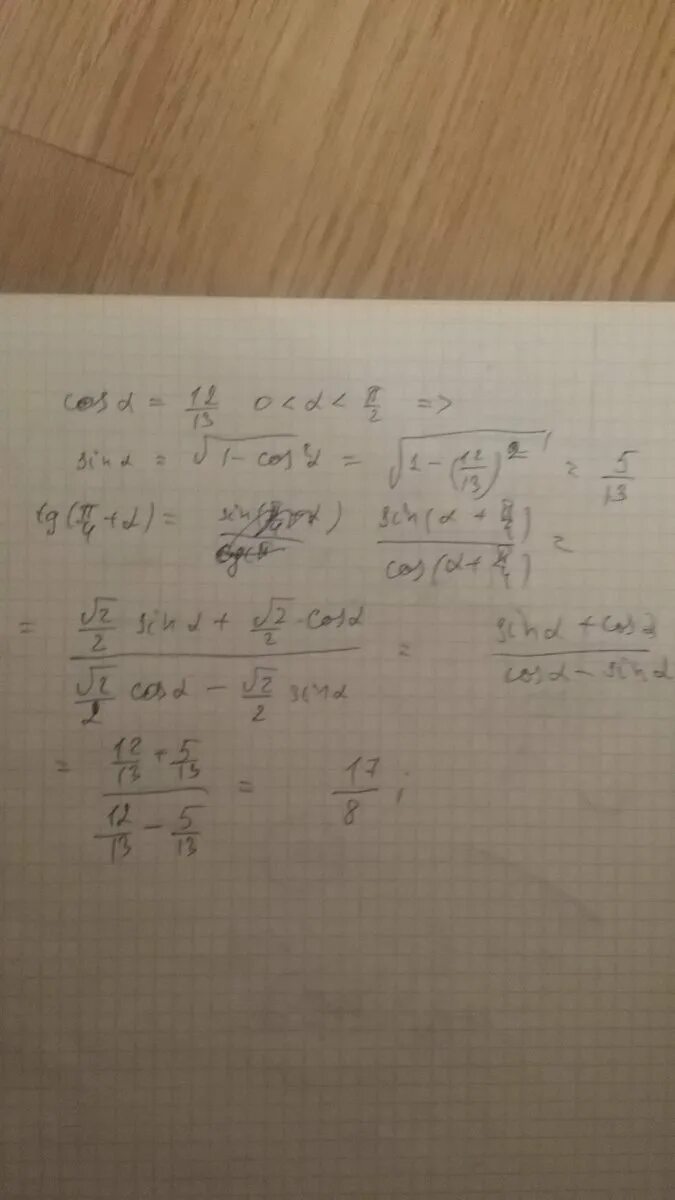 cos α = 12/13 0 < α < π/2 =>
sin α = √(1 - cos²α) = √(1 - (12/13)²) = 5/13
tg(π/4 + α) = sin(α + π/4)/cos(α + π/4) =
= (√2/2 sin α + √2/2 · cos α)/(√2/2 cos α - √2/2 sin α) = (sin α + cos α)/(cos α - sin α)
= (12/13 + 5/13)/(12/13 - 5/13) = 17/8;